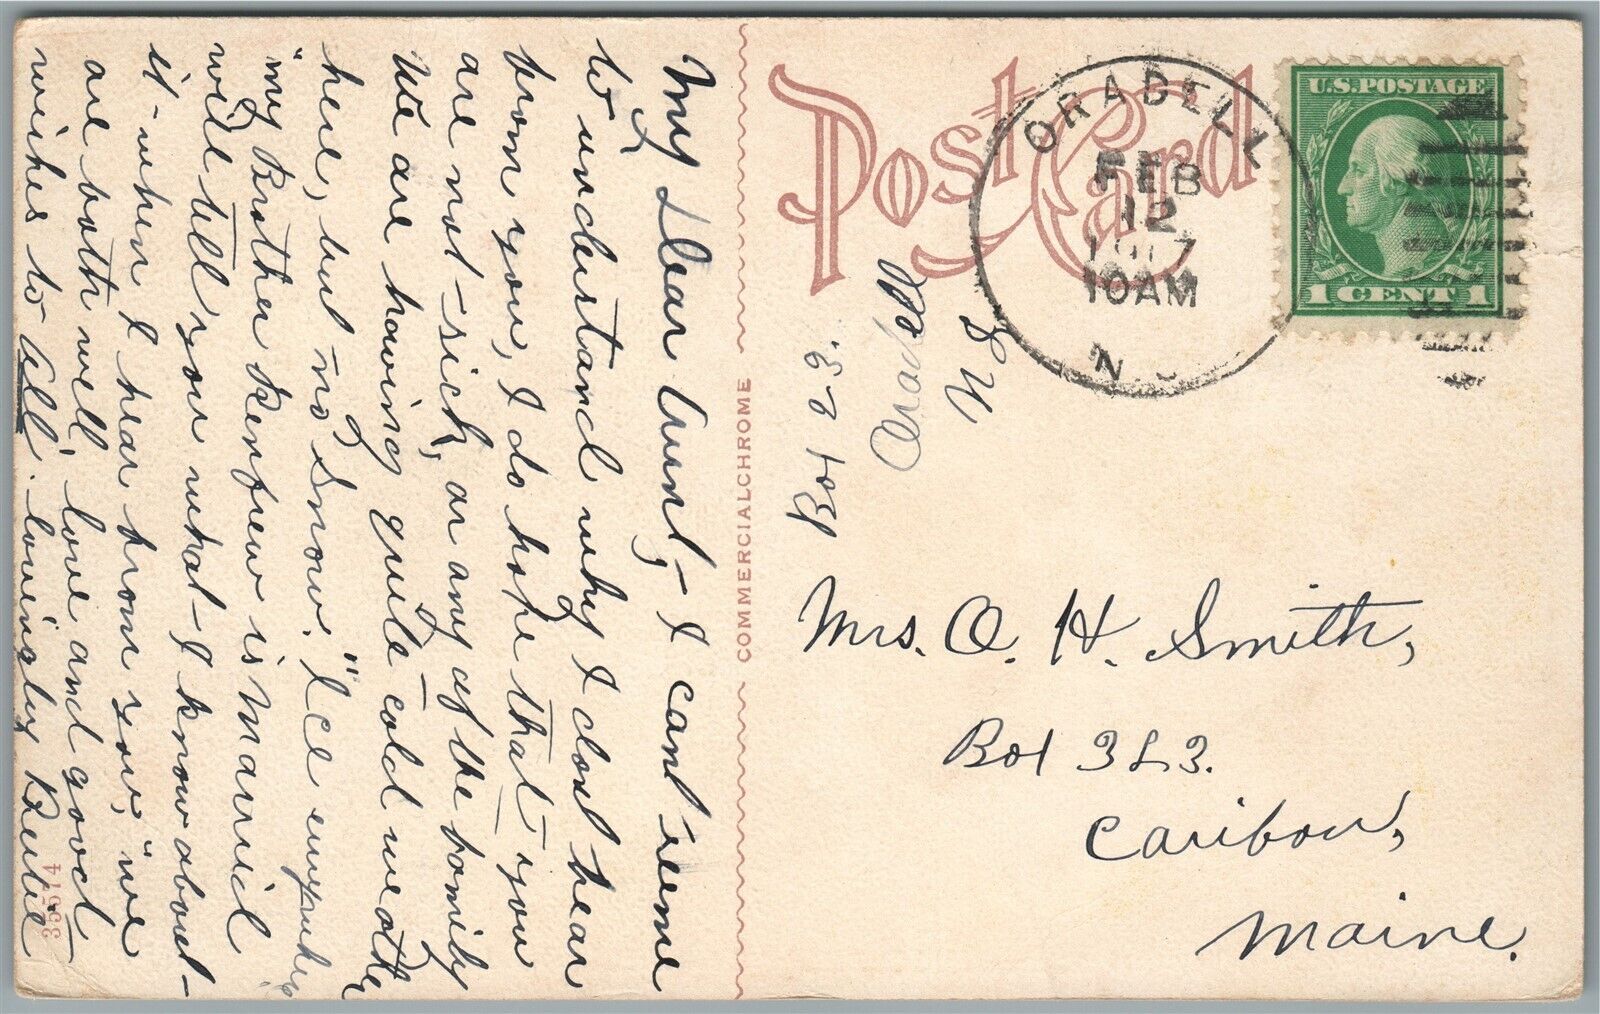 My Dear Aunt,- I cant seeme
to understand why I dont hear
from you, I do hope that you
are not sick, or any of the family
We are having quite cold weather
here, but no Snow. "Ice everywhere"
my Brother Renfrew is Married
will tell you what I know about
it - when I hear from you, "we
are both well, love and good -
wishes to All. lovingly
41953
COMMERCIALCHROME
Post Card
ORADELL
FEB
12
1917
10AM
N.J.
U.S. POSTAGE
1 CENT 1
Box 23.
Oradell
N. J.
Mrs. O. H. Smith,
Box 323.
Caribou,
Maine.